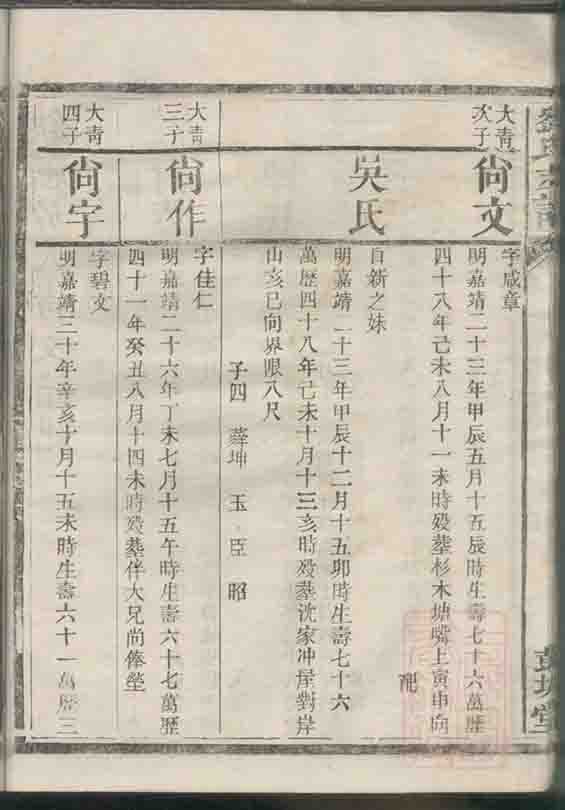 大青
次子
尙文
字咸章
明嘉靖二十三年甲辰五月十五辰時生壽七十六萬歷
四十八年己未八月十一未時歿塟杉木塘嘴上寅申向
配
吳氏
自新之妹
明嘉靖二十三年甲辰十二月十五卯時生壽七十六
萬歷四十八年己未十月十三亥時歿塟沈家冲屋對岸
山亥巳向界限八尺
子四 坤 玉 臣 昭
大青
三子
尙作
字佳仁
明嘉靖二十六年丁未七月十五午時生壽六十七萬歷
四十一年癸丑八月十四未時歿塟伴大兄尚俸塋
大青
四子
尙字
字碧文
明嘉靖三十年辛亥十月十五未時生壽六十一萬歷三